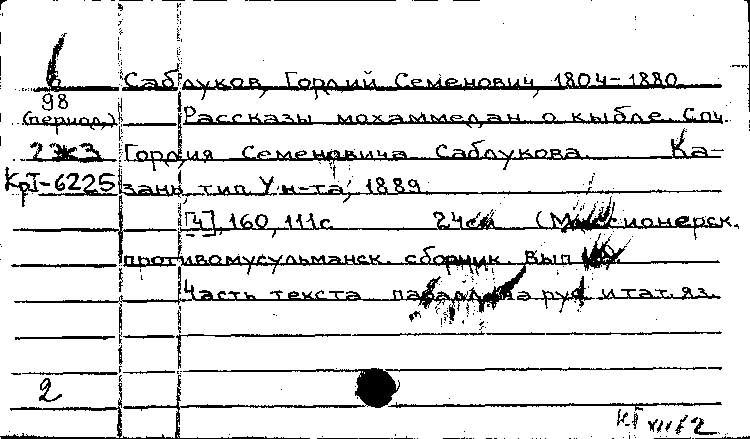 6 Саблуков, Гордий Семенович, 1804-1880
98 (период.) Рассказы мохаммедан о кыбле. Соч.
2ЭКЗ Гордия Семеновича Саблукова. Ка-
КрТ-6225 зань, тип. Ун-та, 1889.
[4], 160, 111с. 24см (Миссионерск.
противомусульманск. сборник. Вып.
Часть текста паралл. на рус. и тат. яз.
2